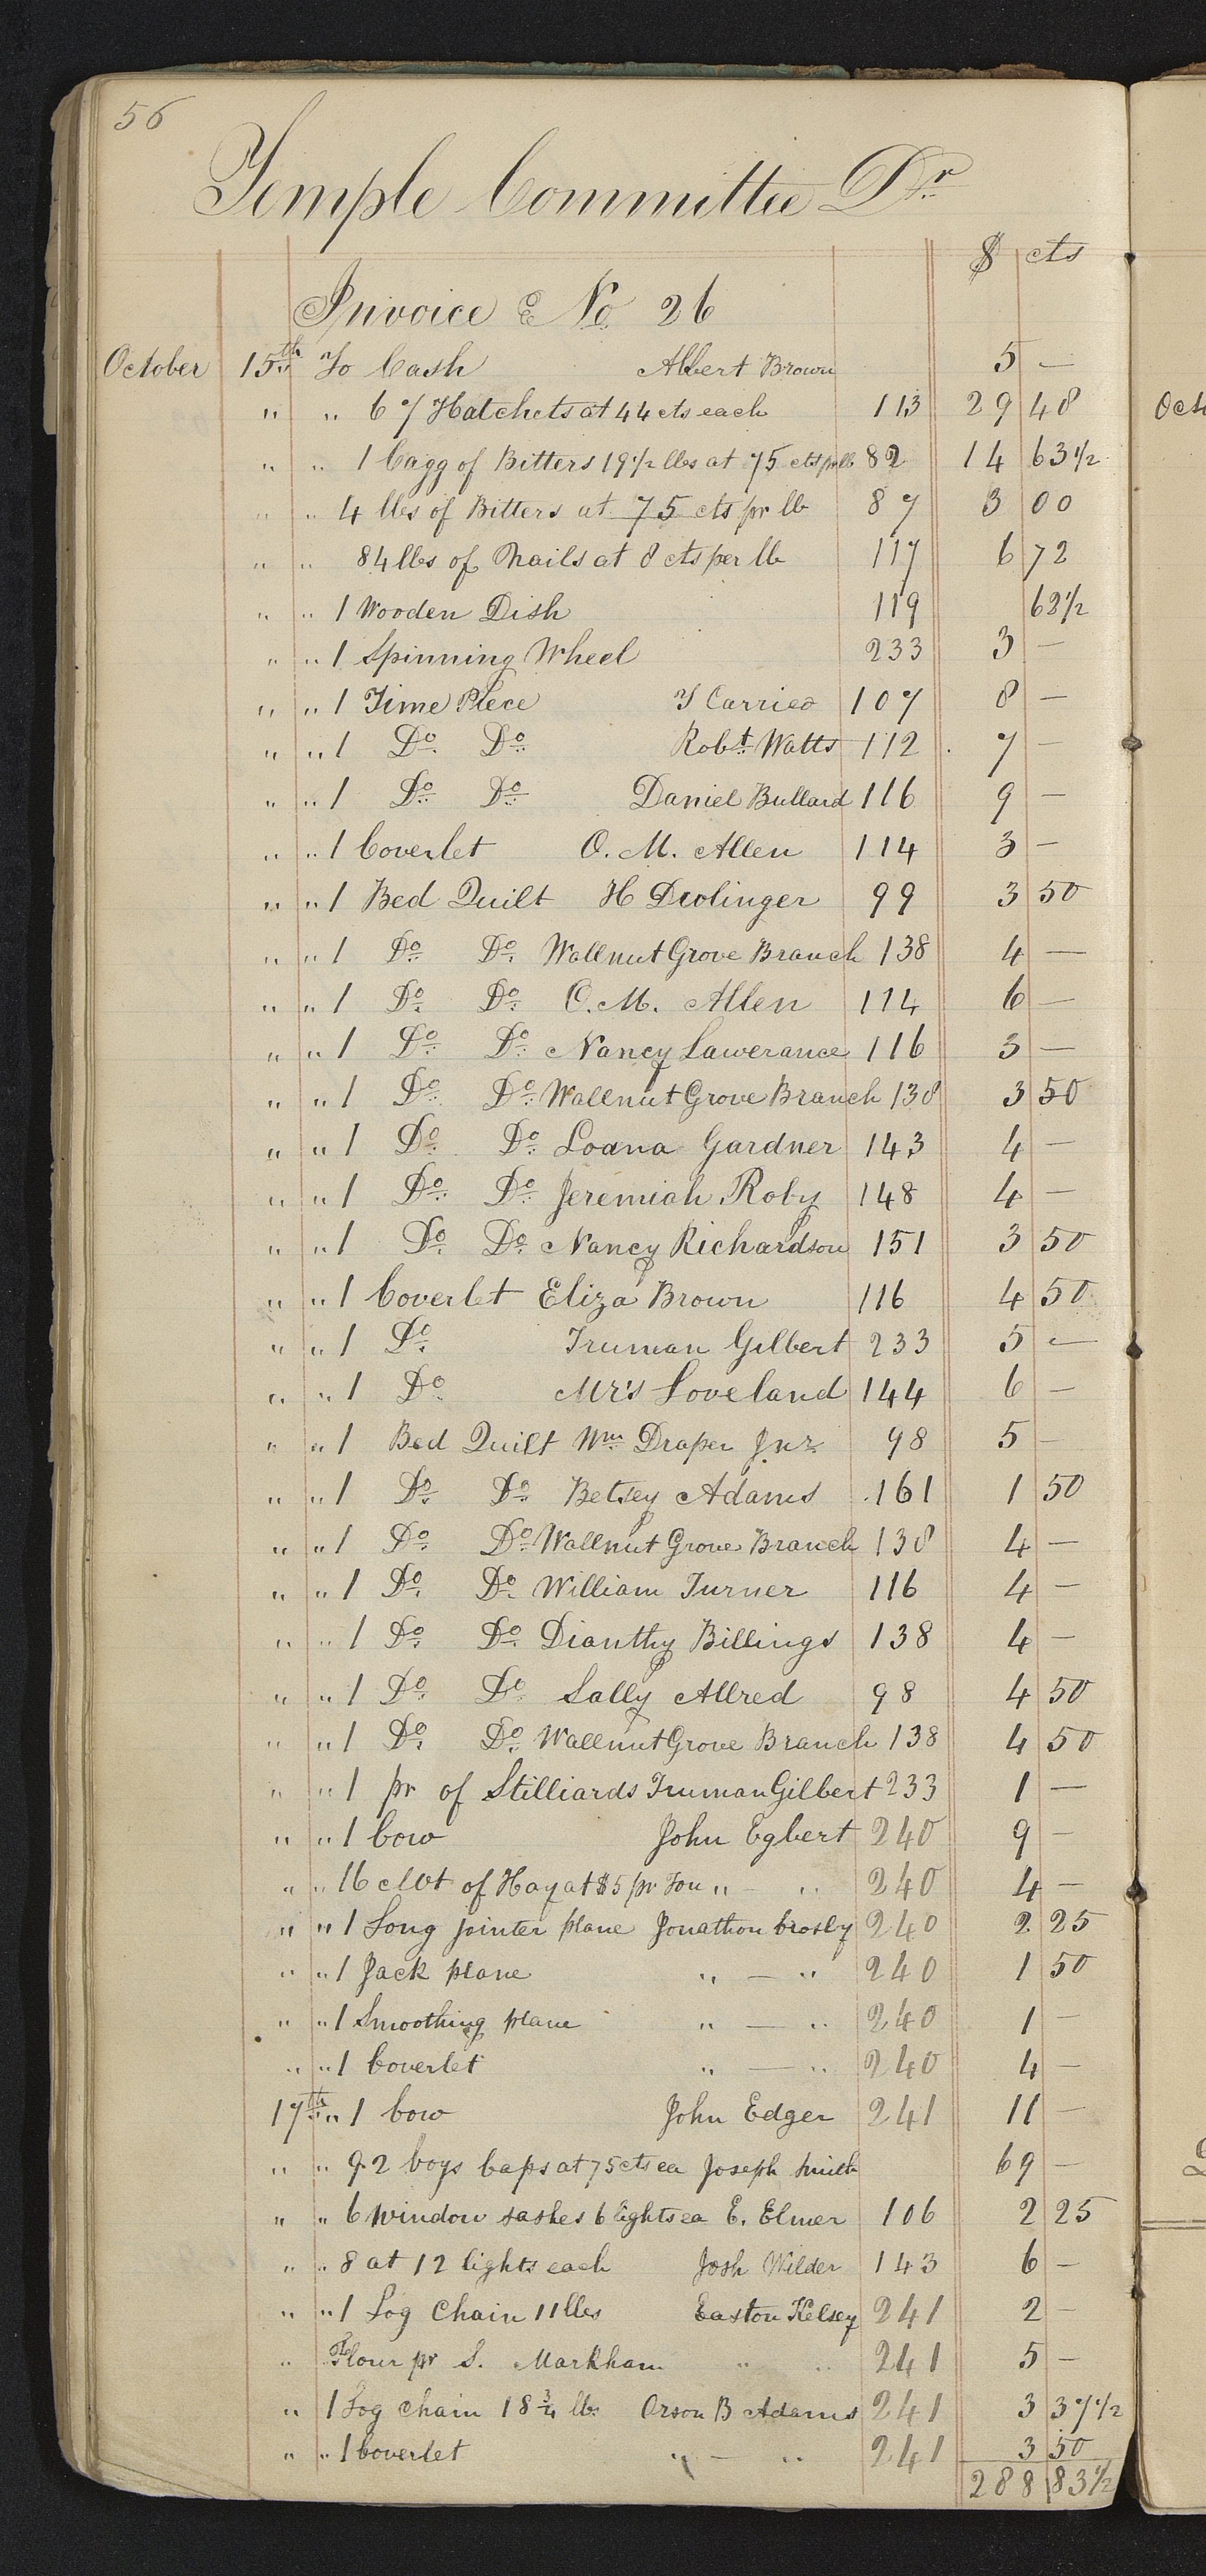 56
Temple Committee Dr
$ cts
Invoice E No 26
October 15th To Cash Albert Brown 5 —
" " 67 Hatchets at 44 cts each 113 29 48
" " 1 Cagg of Bitters 19 1/2 lbs at 75 cts pr lb 82 14 63 1/2
" " 4 lbs of Bitters at 75 cts pr lb 87 3 00
" " 84 lbs of Nails at 8 cts per lb 117 6 72
" " 1 Wooden Dish 119 62 1/2
" " 1 Spinning Wheel 233 3 —
" " 1 Time Piece J Carrico 107 8 —
" " 1 Do Do Robt Watts 112 7 —
" " 1 Do Do Daniel Bullard 116 9 —
" " 1 Coverlet O. M. Allen 114 3 —
" " 1 Bed Quilt H Deolinger 99 3 50
" " 1 Do Do Wallnut Grove Branch 138 4 —
" " 1 Do Do O. M. Allen 114 6 —
" " 1 Do Do Nancy Lawerance 116 3 —
" " 1 Do Do Wallnut Grove Branch 138 3 50
" " 1 Do Do Loana Gardner 143 4 —
" " 1 Do Do Jeremiah Roby 148 4 —
" " 1 Do Do Nancy Richardson 151 3 50
" " 1 Coverlet Eliza Brown 116 4 50
" " 1 Do Truman Gilbert 233 5 —
" " 1 Do Mr's Loveland 144 6 —
" " 1 Bed Quilt Wm Draper Jnr 98 5 —
" " 1 Do Do Betsey Adams 161 1 50
" " 1 Do Do Wallnut Grove Branch 138 4 —
" " 1 Do Do William Turner 116 4 —
" " 1 Do Do Dianthy Billings 138 4 —
" " 1 Do Do Sally Allred 98 4 50
" " 1 Do Do Wallnut Grove Branch 138 4 50
" " 1 pr of Stilliards Truman Gilbert 233 1 —
" " 1 Cow John Egbert 240 9 —
" " 16 cwt of Hay at $5 pr Ton " — " 240 4 —
" " 1 Long jointer plane Jonathon Crosby 240 2 25
" " 1 Jack plane " — " 240 1 50
" " 1 Smoothing plane " — " 240 1 —
" " 1 Coverlet " — " 240 4 —
17th " 1 Cow John Edger 241 11 —
" " 92 boys Caps at 75 cts ea Joseph Smith 69 —
" " 6 window sashes 6 lights ea E. Elmer 106 2 25
" " 8 at 12 lights each Josh Wilder 143 6 —
" " 1 Log Chain 11 lbs Easton Kelsey 241 2 —
" " Flour pr S. Markham " " 241 5 —
" 1 Log chain 18 3/4 lbs Orson B Adams 241 3 37 1/2
" " 1 Coverlet " — " 241 3 50
288 83 1/2